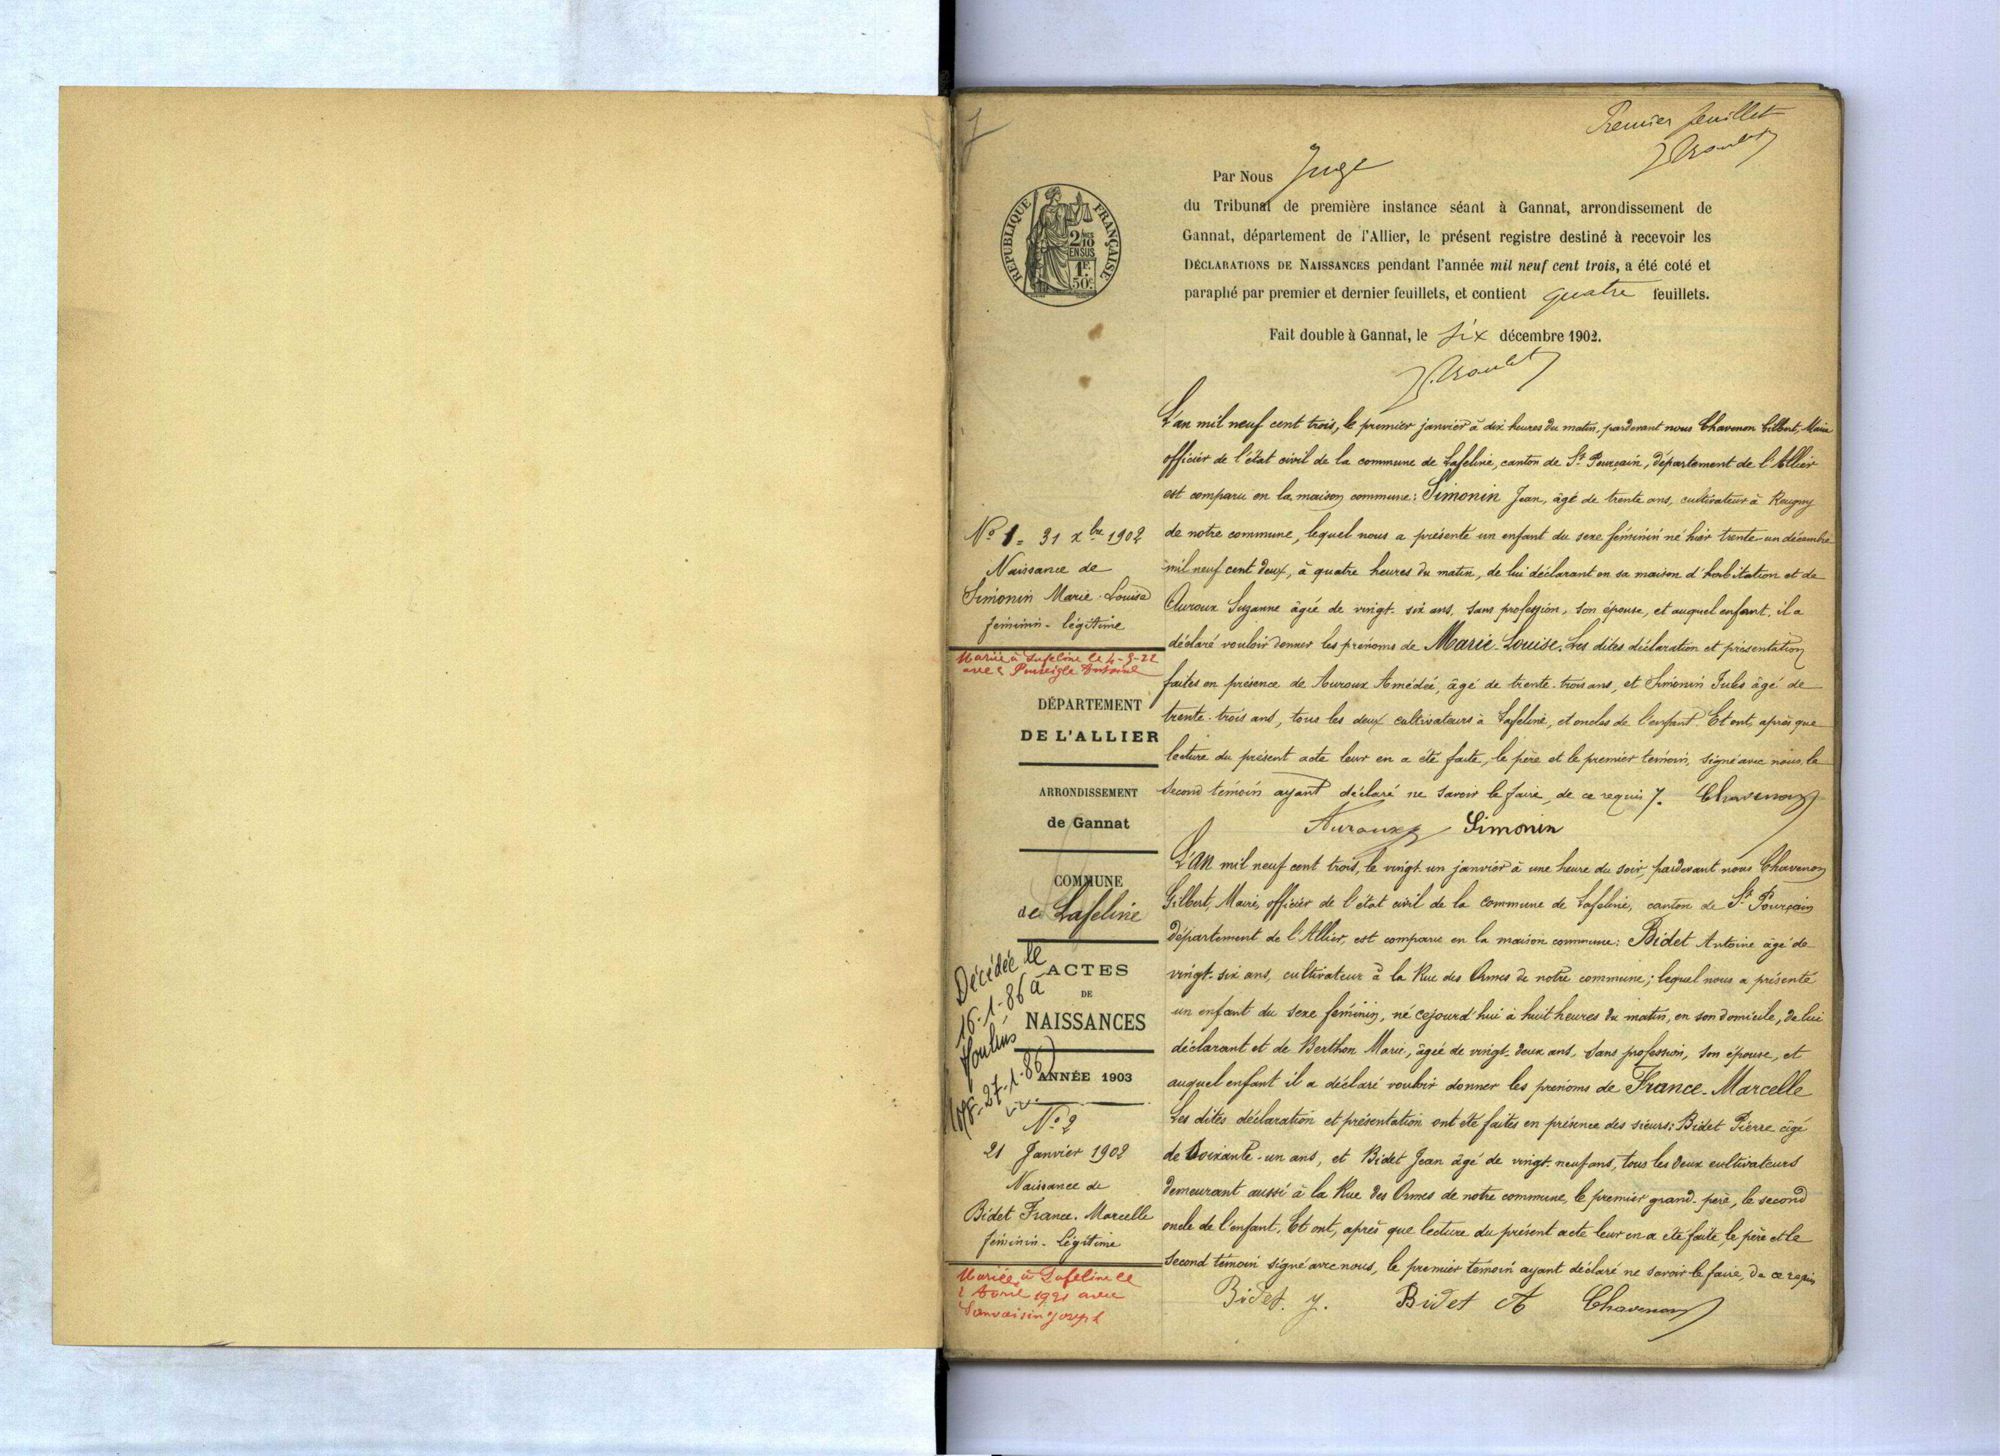 Premier feuillet
Par Nous Juge
du Tribunal de première instance séant à Gannat, arrondissement de
Gannat, département de l'Allier, le présent registre destiné à recevoir les
DÉCLARATIONS DE NAISSANCES pendant l'année mil neuf cent trois, a été coté et
paraphé par premier et dernier feuillets, et contient quatre feuillets.
Fait double à Gannat, le six décembre 1902.
RÉPUBLIQUE FRANÇAISE
2/10 EN SUS
1F 50c
L'an mil neuf cent trois, le premier janvier à dix heures du matin, pardevant nous Chavenon Gilbert, Maire
officier de l'état civil de la commune de Lafeline, canton de St Pourçain, département de l'Allier
est comparu en la maison commune: Simonin Jean, âgé de trente ans, cultivateur à Rougny
de notre commune, lequel nous a présenté un enfant du sexe féminin né hier trente-un décembre
mil neuf cent deux, à quatre heures du matin, de lui déclarant en sa maison d'habitation et de
Auroux Suzanne âgée de vingt-six ans, sans profession, son épouse, et auquel enfant, il a
déclaré vouloir donner les prénoms de Marie-Louise. Les dites déclaration et présentation
faites en présence de Auroux Amédée, âgé de trente-trois ans, et Simonin Jules âgé de
trente-trois ans, tous les deux cultivateurs à Lafeline, et oncles de l'enfant. Et ont, après que
lecture du présent acte leur en a été faite, le père et le premier témoin, signé avec nous, le
second témoin ayant déclaré ne savoir le faire, de ce requis /. Chavenon
Auroux Simonin
No 1 = 31 xbre 1902
Naissance de
Simonin Marie-Louise
féminin - légitime
Mariée à Lafeline le 4-9-22
avec Antoine
DÉPARTEMENT
DE L'ALLIER
ARRONDISSEMENT
de Gannat
COMMUNE
de Lafeline
ACTES
DE
NAISSANCES
ANNÉE 1903
Décédée le
16-1-86 à
Moulins
27-1-86
No 2
21 Janvier 1902
Naissance de
Bidet France-Marcelle
féminin - légitime
Mariée à Lafeline le
2 Avril 1921 avec
Joseph
L'an mil neuf cent trois, le vingt-un janvier à une heure du soir, pardevant nous Chavenon
Gilbert, Maire, officier de l'état civil de la commune de Lafeline, canton de St Pourçain
département de l'Allier, est comparu en la maison commune: Bidet Antoine âgé de
vingt-six ans, cultivateur à la Rue des Ormes de notre commune; lequel nous a présenté
un enfant du sexe féminin, né cejourd'hui à huit heures du matin, en son domicile, de lui
déclarant et de Berthon Marie, âgée de vingt-deux ans, sans profession, son épouse, et
auquel enfant il a déclaré vouloir donner les prénoms de France-Marcelle
Les dites déclaration et présentation ont été faites en présence des sieurs: Bidet Pierre âgé
de soixante-un ans, et Bidet Jean âgé de vingt-neuf ans, tous les deux cultivateurs
demeurant aussi à la Rue des Ormes de notre commune, le premier grand-père, le second
oncle de l'enfant. Et ont, après que lecture du présent acte leur en a été faite, le père et le
second témoin signé avec nous, le premier témoin ayant déclaré ne savoir le faire, de ce requis
Bidet. J. Bidet A Chavenon